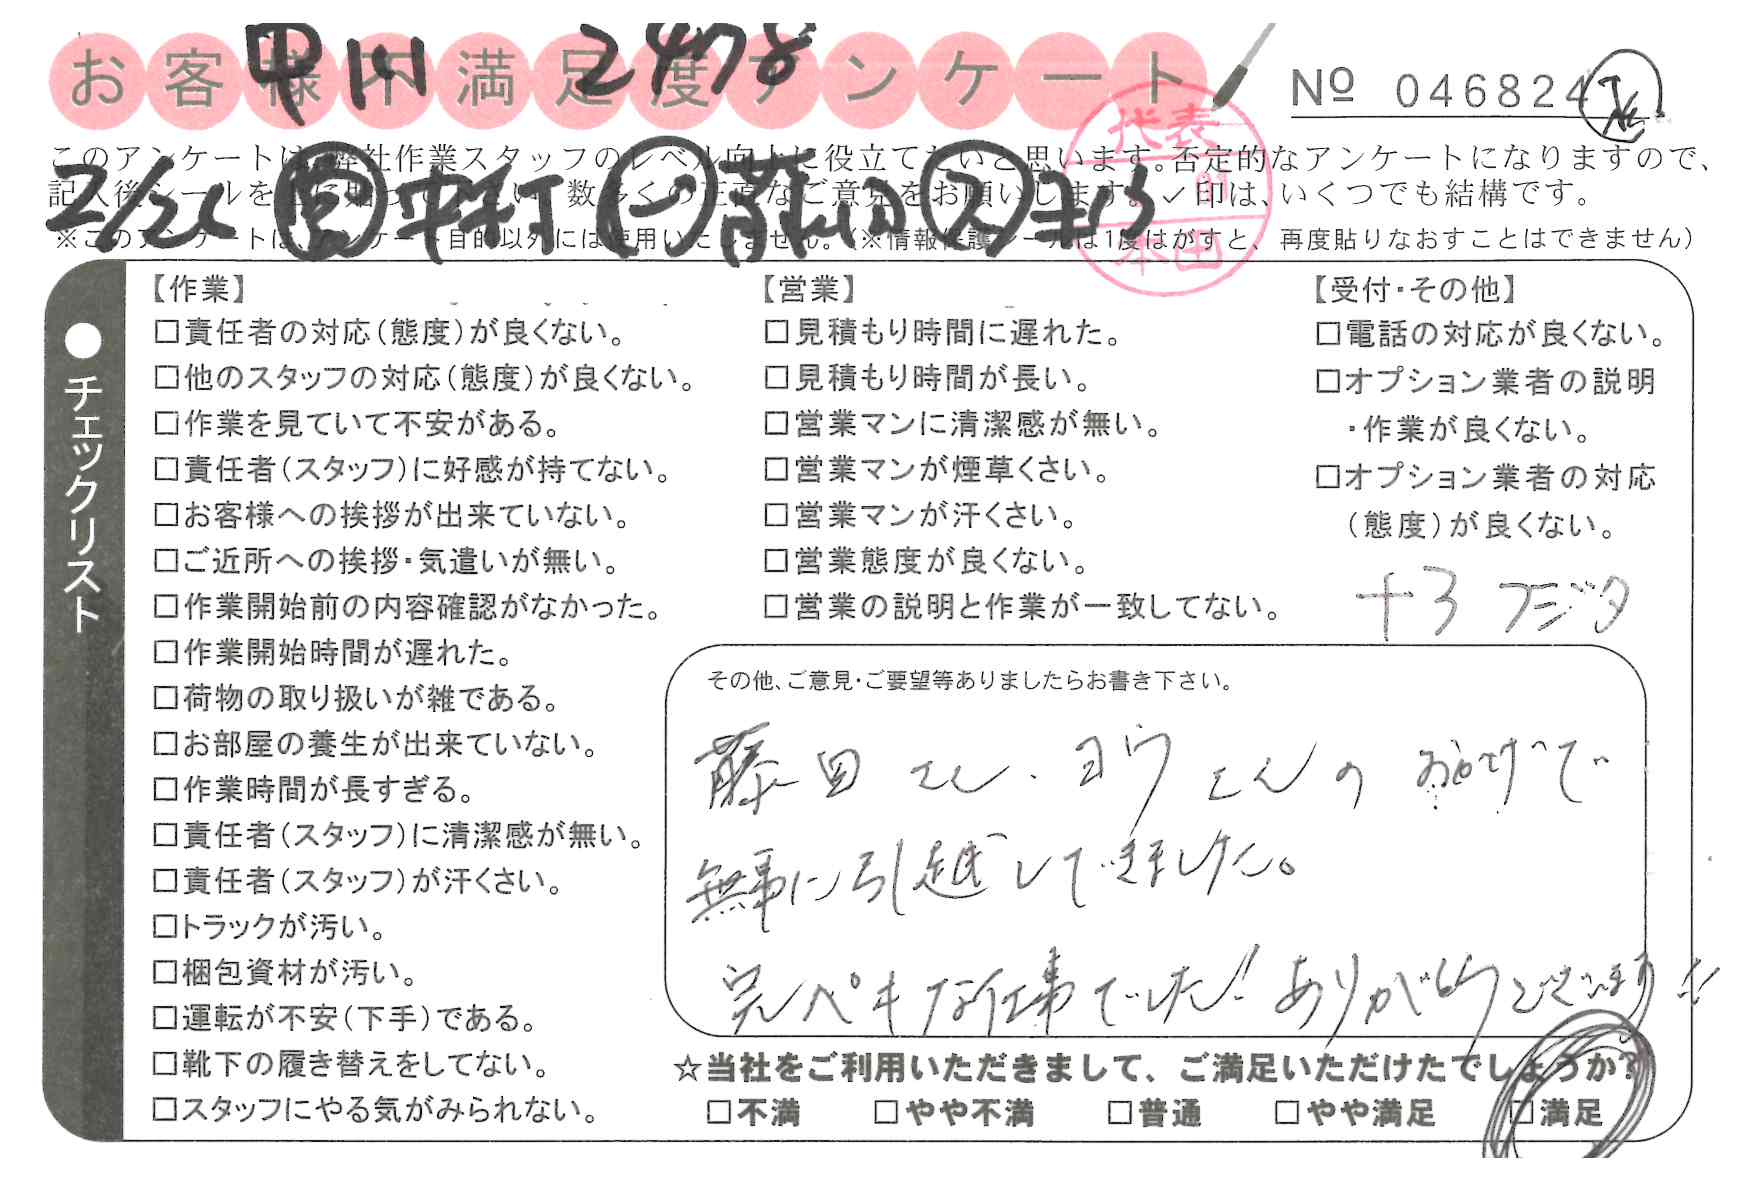 お客様不満足度アンケート
甲川 2478
No 046824
このアンケートは、弊社作業スタッフのレベル向上に役立てたいと思います。否定的なアンケートになりますので、
記入後シールを上に貼って下さい。数多くの正直なご意見をお願いします。✓印は、いくつでも結構です。
中村
※このアンケートは、アンケート目的以外には使用いたしません。(※情報保護シールは1度はがすと、再度貼りなおすことはできません)
代表
本田
●チェックリスト
【作業】
□責任者の対応(態度)が良くない。
□他のスタッフの対応(態度)が良くない。
□作業を見ていて不安がある。
□責任者(スタッフ)に好感が持てない。
□お客様への挨拶が出来ていない。
□ご近所への挨拶・気遣いが無い。
□作業開始前の内容確認がなかった。
□作業開始時間が遅れた。
□荷物の取り扱いが雑である。
□お部屋の養生が出来ていない。
□作業時間が長すぎる。
□責任者(スタッフ)に清潔感が無い。
□責任者(スタッフ)が汗くさい。
□トラックが汚い。
□梱包資材が汚い。
□運転が不安(下手)である。
□靴下の履き替えをしてない。
□スタッフにやる気がみられない。
【営業】
□見積もり時間に遅れた。
□見積もり時間が長い。
□営業マンに清潔感が無い。
□営業マンが煙草くさい。
□営業マンが汗くさい。
□営業態度が良くない。
□営業の説明と作業が一致してない。
【受付・その他】
□電話の対応が良くない。
□オプション業者の説明
・作業が良くない。
□オプション業者の対応
(態度)が良くない。
+3 フジタ
その他、ご意見・ご要望等ありましたらお書き下さい。
藤田さん、ヨウさんのおかげで
無事に引越しできました。
完ペキな仕事でした!ありがとうございます!!
☆当社をご利用いただきまして、ご満足いただけたでしょうか?
□不満 □やや不満 □普通 □やや満足 □満足